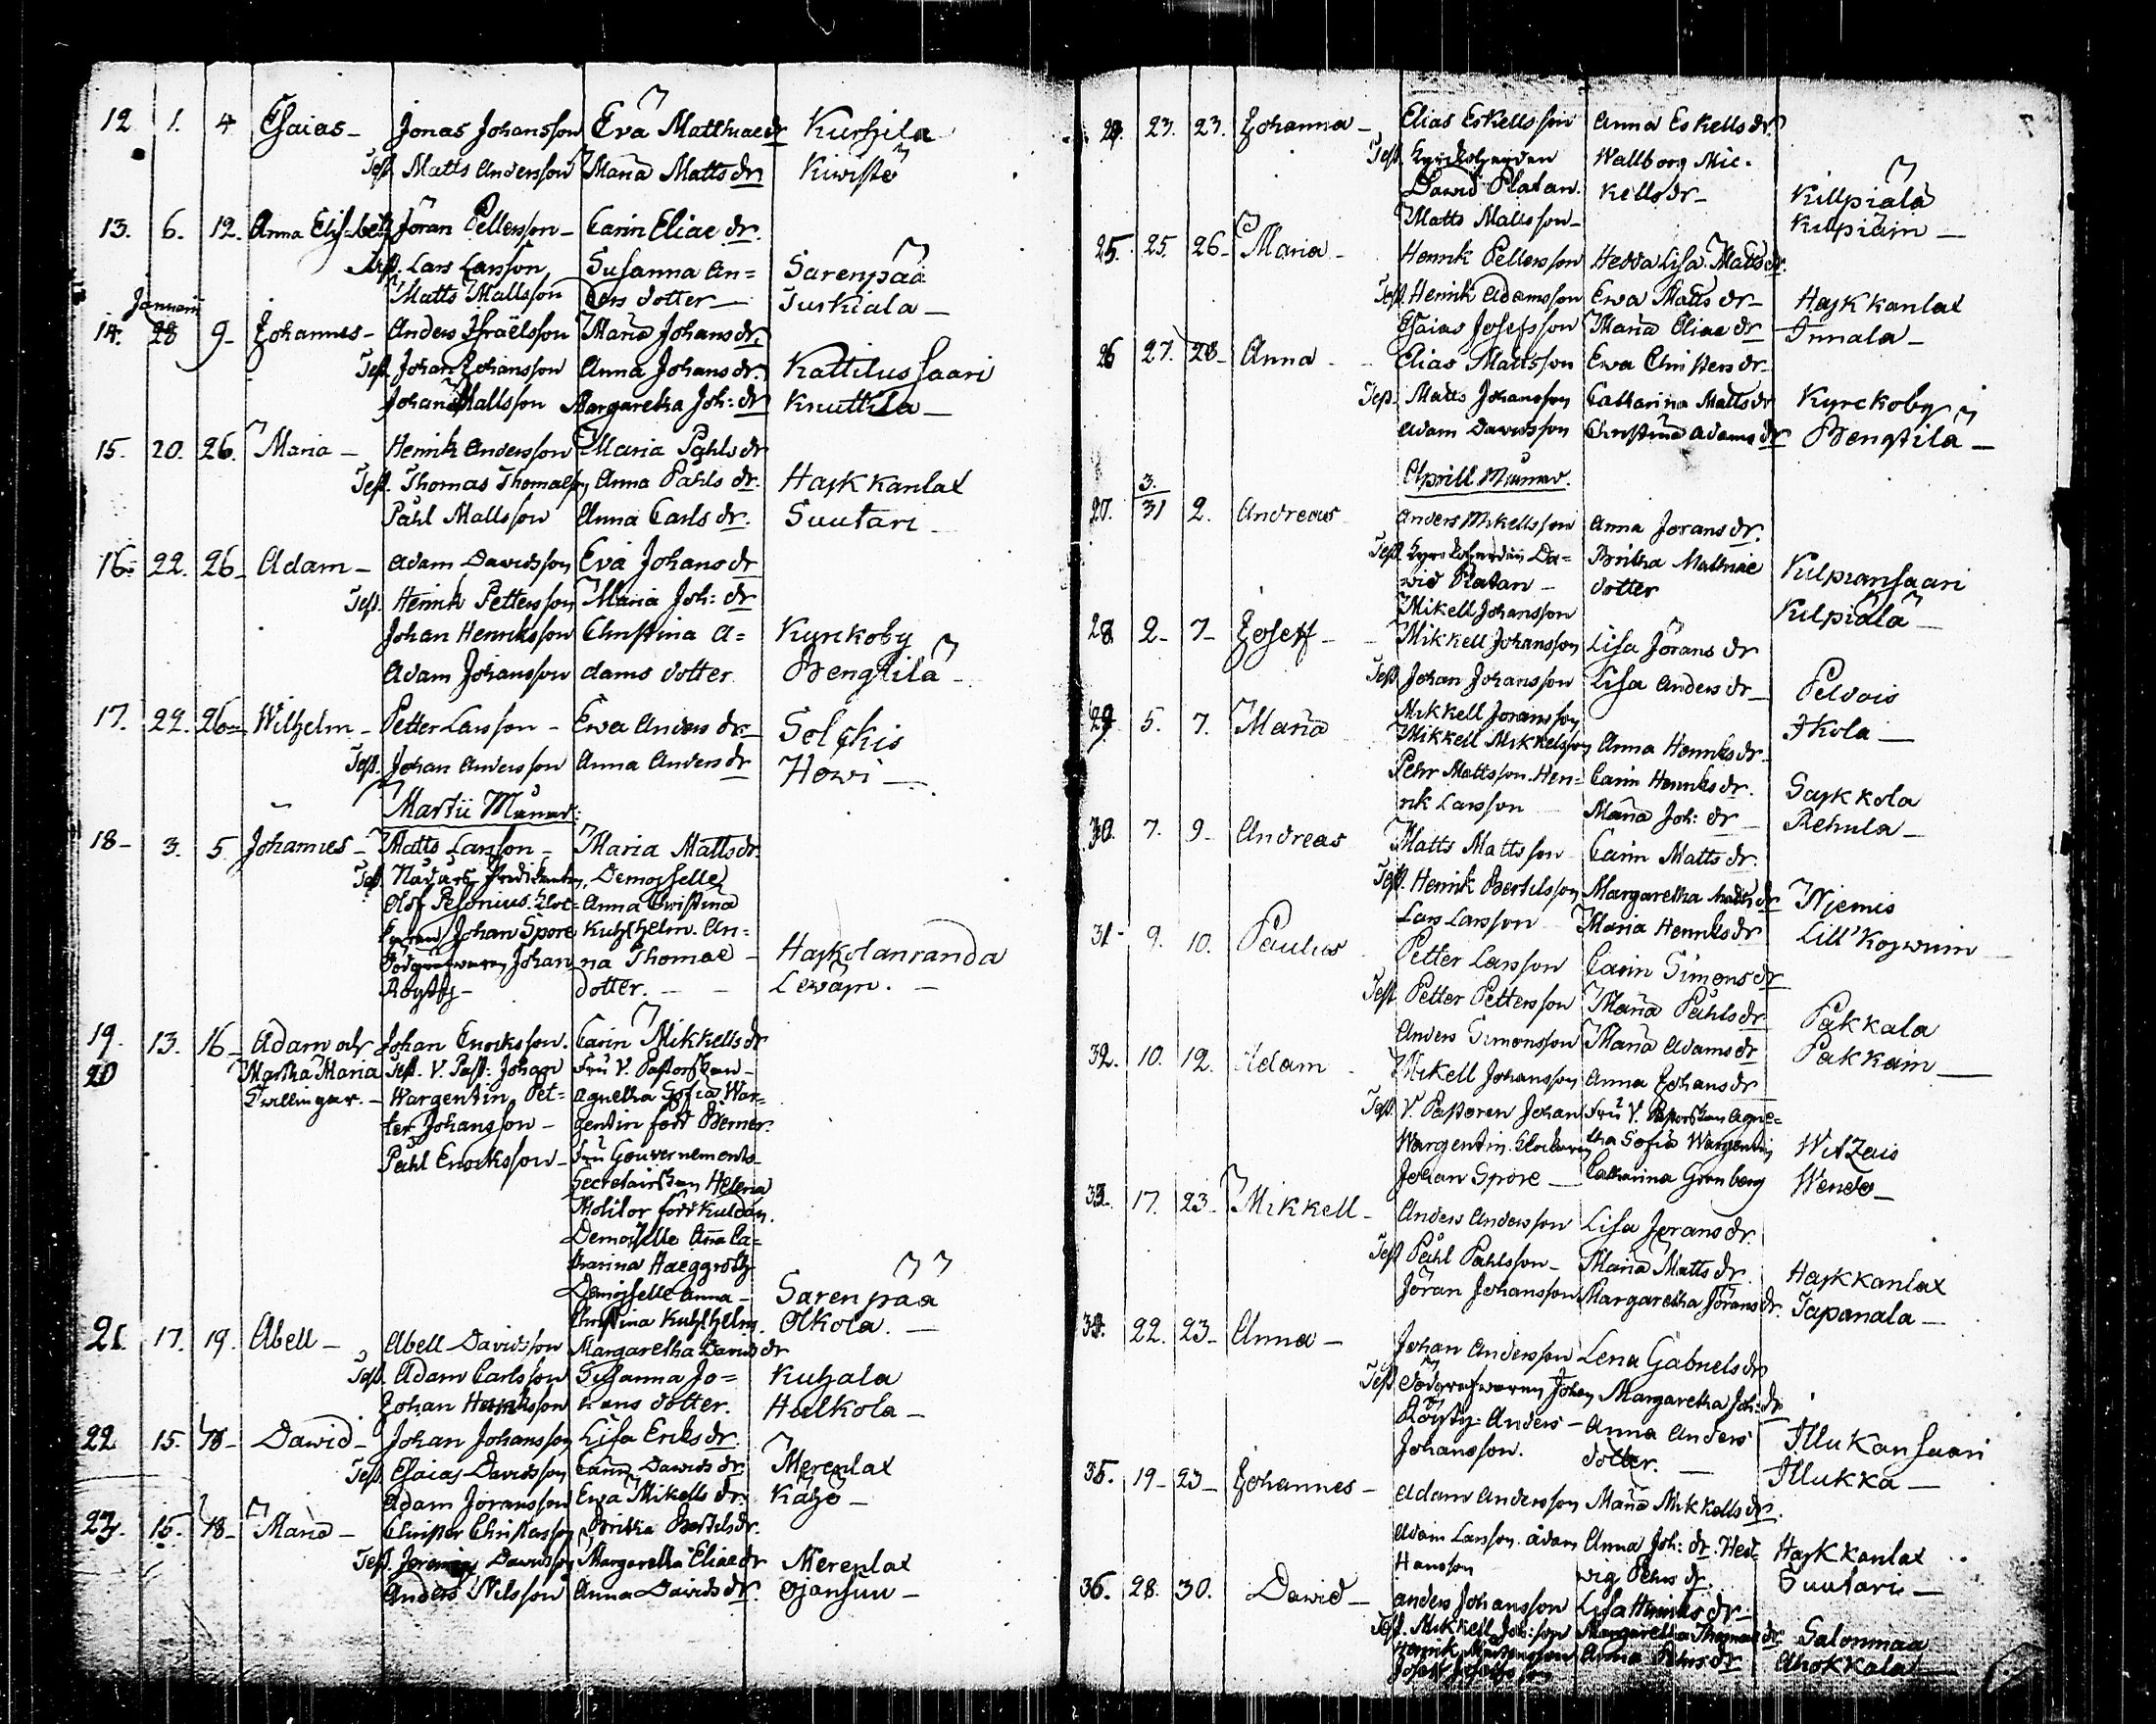 12 1. 4 Esaias - Jonas Johansson Eva Matthiae dr Kurhila
Test. Matts Andersson Maria Matts dr Kiwistö
13. 6. 12. Anna Elisabeth Jöran Pettersson - Carin Eliae dr.
Test. Lars Larsson Susanna An= Sarenpää
Matts Mattsson ders dotter - Turkiala -
Januarii
14. 28 9 - Johannes - Anders Israëlsson Maria Johans dr.
Test. Johan Johansson Anna Johans dr. Kattilussaari
Johan Mattsson Margaretha Joh: dr Knuttila -
15. 20. 26. Maria - Henrik Andersson Maria Påhls dr
Test. Thomas Thomasson Anna Påhls dr. Hajkkanlax
Påhl Mattsson Anna Carls dr. Suutari -
16. 22. 26 - Adam - Adam Davidsson Eva Johans dr
Test. Henrik Pettersson Maria Joh: dr
Johan Henriksson Christina A= Kyrckoby
Adam Johansson dams dotter Bengtilä -
17. 22. 26 - Wilhelm - Petter Larsson - Ewa Anders dr. Solckis
Test. Johan Andersson Anna Anders dr Howi -
Martii Månad:
18 - 3. 5 Johannes - Matts Larsson - Maria Matts dr.
Test. Predikanten, Demoiselle
Olof Pesonius. Kloc= Anna Christina
karen Johan Spore Kuhlhelm. An=
Dödgrafwaren Johan na Thomae - Hajkolanranda
Röytty - dotter. - - Lewäin. -
19. 13. 16 - Adam och Johan Enocksson. Carin Mikkells dr
20 Martha Maria Test. V. Past: Johan Fru V. Pastorskan -
Twillingar. - Wargentin Pet= Agnetha Sofia War=
ter Johansson - gentin född Berner.
Påhl Enocksson - Fru Gouvernements
Secretairskan Helena
Molitor född Kuldan.
Demoiselle Anna Ca=
tharina Haeggroth
Demoiselle Anna - Sarenpää
Christina Kuhlhelm. Olkola. -
21. 17. 19. Abell - Abell Davidsson Margaretha Davids dr
Test. Adam Carlsson Susanna Jo= Kuhala
Johan Henriksson hans dotter. Hulkola -
22 15. 18 - Dawid - Johan Johansson Lisa Eriks dr.
Test. Esaias Davidsson Carin Dawids dr. Merenlax
Adam Joransson Ewa Mikells dr. Kähö -
23. 15. 18 - Maria - Christer Christersson Britha Bertils dr.
Test. Jeremias Dawidsson Margaretha Eliae dr Merenlax
Anders Nilsson Anna Dawids dr. Ojansuu -
24. 23. 23. Johanna - Elias Eskellsson Anna Eskells dr.
Test. Kyrckoherden Wallborg Mic-
Dawid Platan. kells dr - Killpiälä
Matts Mattsson - Kilpiäin -
25. 25. 26 - Maria - Henrik Pettersson Hedda Lisa Matts dr.
Test. Henrik Adamsson Ewa Matts dr - Hajkkanlax
Esaias Josefsson Maria Eliae dr Innala -
26 27. 28 - Anna - Elias Mattsson Ewa Christers dr -
Test. Matts Johansson Catharina Matts dr Kyrckoby
Adam Davidsson Christina Adams dr Bengtilä -
Aprill Månad.
3.
27. 31 2. Andreas Anders Mikellsson Anna Jorans dr.
Test. Kyrckoherden Da= Britha Mathiae Kilpiansaari
wid Platan - dotter
Mikell Johansson Kilpiälä -
28 2 - 7 - Joseff - Mikkell Johansson Lisa Jörans dr
Test. Johan Johansson Lisa Anders dr - Peldois
Mikkell Joransson Ikola -
29 5. 7. Maria Mikkell Mikkelsson Anna Henriks dr.
Pehr Mattsson. Hen= Carin Henriks dr. Sajkkola
rik Larsson Maria Joh: dr - Rehula -
30. 7. 9 - Andreas Matts Mattsson Carin Matts dr.
Test. Henrik Bertilsson Margaretha Matts dr Njemis
Lars Larsson Maria Henriks dr Lill'Kojwuin -
31 - 9. 10. Paulus Petter Larsson Carin Simons dr
Test. Petter Pettersson Maria Påhls dr Pakkala
Anders Simonsson Maria Adams dr Pakkain -
32. 10. 12. Adam Mikell Johansson Anna Johans dr
Test. V. Pastoren Johan Fru V. Pastorskan Agne=
Wargentin. Klockaren tha Sofia Wargentin Witzais
Johan Spore - Catharina Grönberg Wendo -
33. 17. 23 - Mikkell - Anders Andersson Lisa Jorans dr.
Test. Påhl Pahlsson - Maria Matts dr. Hajkkanlax
Jöran Johansson Margaretha Jörans dr. Tapanala -
34. 22. 23 - Anna - Johan Andersson Lena Gabriels dr
Test. Dödgrafwaren Johan Margaretha Joh: dr
Röytty. Anders - Anna Anders Illukansaari
Johansson. dotter. - Illukka -
35. 19 - 23 - Johannes - Adam Andersson Maria Mikkells dr.
Adam Larsson. Adam Anna Joh: dr. Hed= Hajkkanlax
Hansson wig Pehrs dr. Suutari -
36. 28. 30. Dawid - Anders Johansson Lisa Henriks dr -
Test. Mikkell Joh:son Margaretha Thomae dr Salonmaa
Henrik Anna Pehrs dr Ahokkala -
Josef